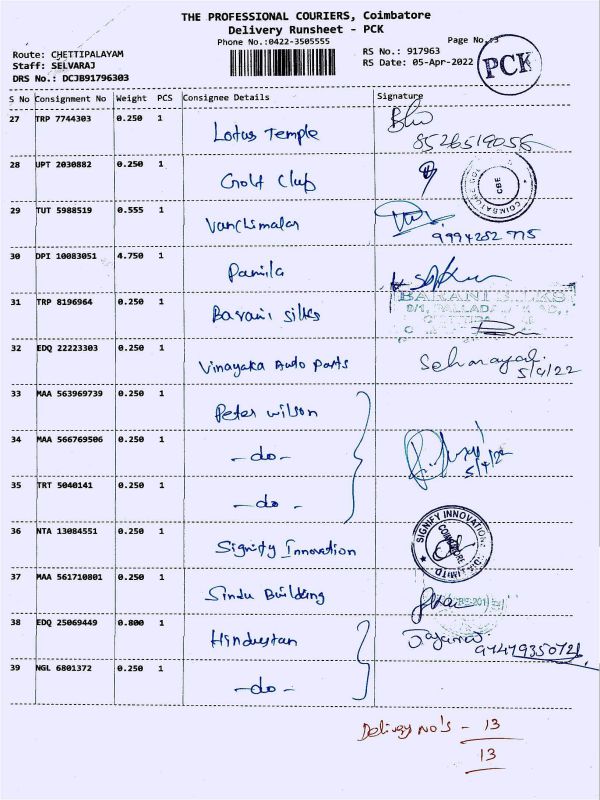 THE PROFESSIONAL COURIERS, Coimbatore
Delivery Runsheet - PCK
Phone No.:0422-3505555
Page No.:3
Route: CHETTIPALAYAM
Staff: SELVARAJ
DRS No.: DCJB91796303
RS No.: 917963
RS Date: 05-Apr-2022
PCK
S No Consignment No Weight PCS Consignee Details Signature
27 TRP 7744303 0.250 1 Lotus Temple
8526519056
28 UPT 2030882 0.250 1 Golf Club
CBE
29 TUT 5988519 0.555 1 Vanchimalar
9994252 775
30 DPI 10083051 4.750 1 Pamila
31 TRP 8196964 0.250 1 Barani Silks
BARANI SILKS
32 EDQ 22223303 0.250 1 Vinayaka Auto Parts
5/4/22
33 MAA 563969739 0.250 1 Peter Wilson
34 MAA 566769506 0.250 1 -do-
5/4/22
35 TRT 5040141 0.250 1 -do-
36 NTA 13084551 0.250 1 Signify Innovation
SIGNIFY INNOVATION
COIMBATORE
37 MAA 561710801 0.250 1 Sindu Building
38 EDQ 25069449 0.800 1 Hindustan
97479350721
39 NGL 6801372 0.250 1 -do-
Delivery No's - 13
13